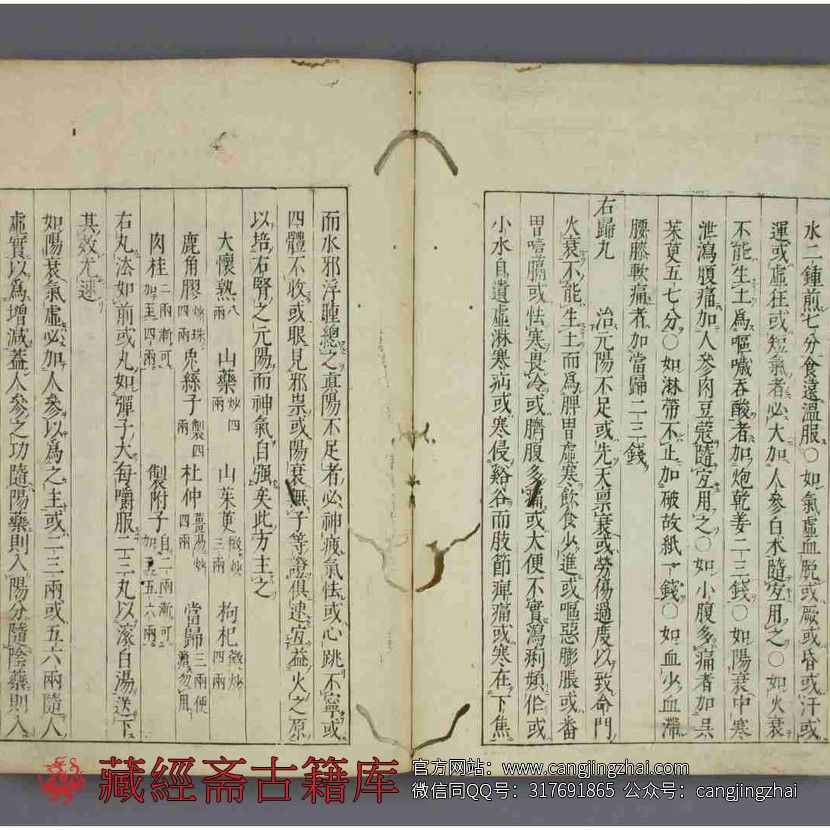 水二鍾煎七分食遠溫服○如氣虛血脫或厥或昏或汗或
運或虛狂或短氣者必大加人參白朮隨宜用之○如火衰
不能生土爲嘔噦吞酸者加炮乾姜二三錢○如陽衰中寒
泄瀉腹痛加人參肉豆蔻隨宜用之○如小腹多痛者加吳
茱萸五七分○如淋帶不止加破故紙一錢○如血少血滯
腰膝軟痛者加當歸二三錢
右歸丸 治元陽不足或先天禀衰或勞傷過度以致命門
火衰不能生土而爲脾胃虛寒飲食少進或嘔惡膨脹或番
胃噎膈或怯寒畏冷或臍腹多痛或大便不實瀉痢頻作或
小水自遺虛淋寒疝或寒侵谿谷而肢節痺痛或寒在下焦
而水邪浮腫總之眞陽不足者必神疲氣怯或心跳不寧或
四體不收或眼見邪祟或陽衰無子等證俱速宜益火之原
以培右腎之元陽而神氣自强矣此方主之
大懷熟八兩 山藥炒四兩 山茱萸微炒三兩 枸杞微炒四兩
鹿角膠炒珠四兩 兎絲子製四兩 杜仲薑湯炒四兩 當歸三兩便溏勿用
肉桂二兩漸可加至四兩 製附子自二兩漸可加至五六兩
右丸法如前或丸如彈子大每嚼服二三丸以滾白湯送下
其效尤速
如陽衰氣虛必加人參以爲之主或二三兩或五六兩隨人
虛實以爲增減葢人參之功隨陽藥則入陽分隨陰藥則入
藏經斋古籍库
官方网站：www.cangjingzhai.com
微信同QQ号：317691865 公众号：cangjingzhai